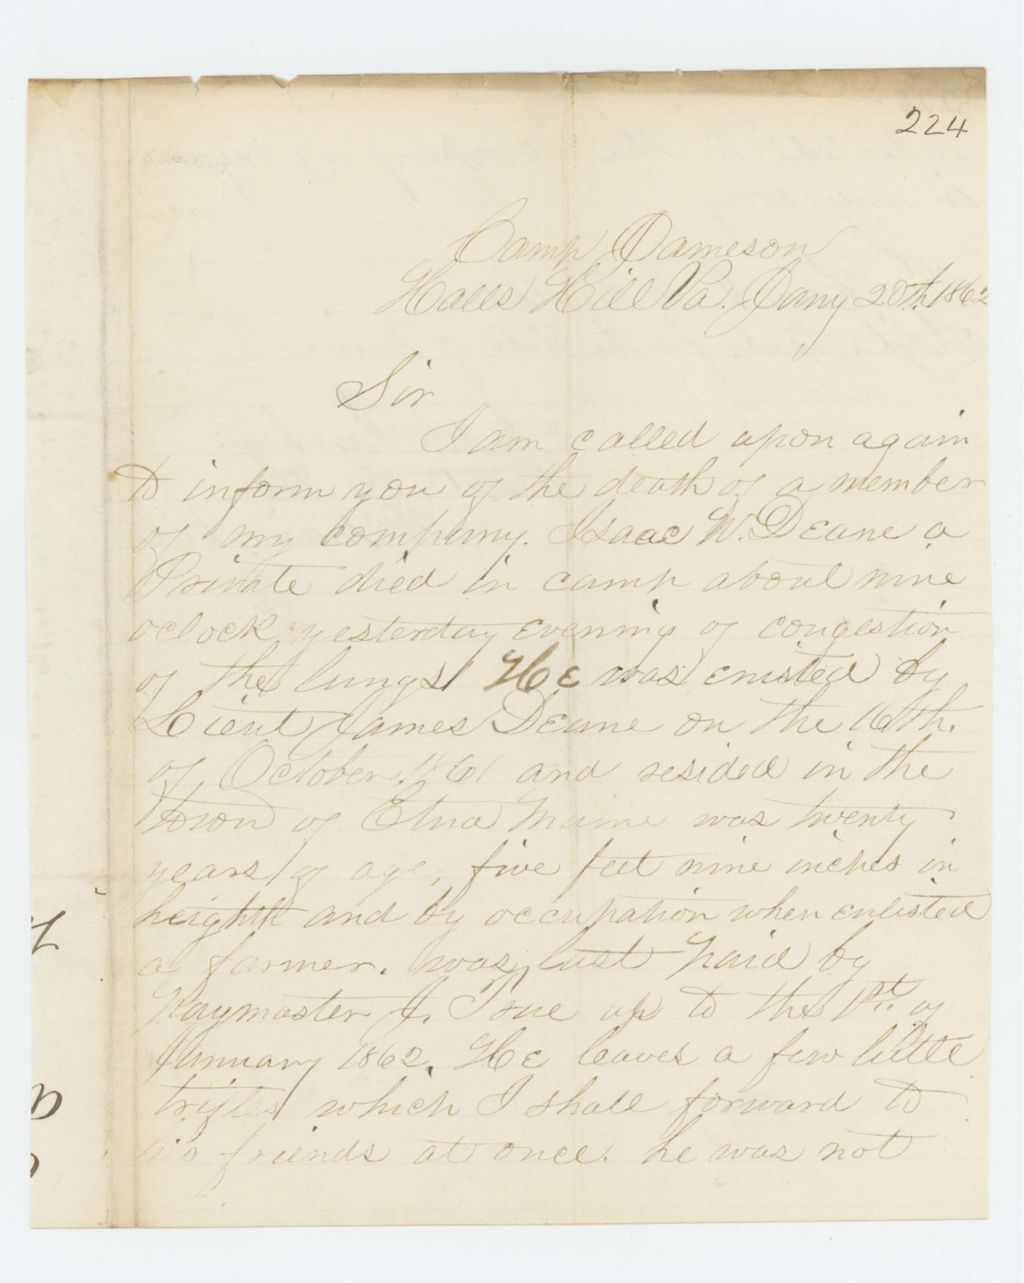 224
Camp Jameson
Halls Hill Va. Jany 20th. 1862
Sir
I am called upon again
to inform you of the death of a member
of my company. Isaac W. Deane a
Private died in camp about nine
oclock yesterday evening of congestion
of the lungs. He was enisted by
Lieut James Deane on the 16th.
of October 1861 and resided in the
town of Etna Maine was twenty
years of age, five feet nine inches in
heighth and by occupation when enlisted
a farmer. was last paid by
Paymaster J. True up to the 1st. of
January 1862. He leaves a few little
trifles which I shall forward to
his friends at once. he was not